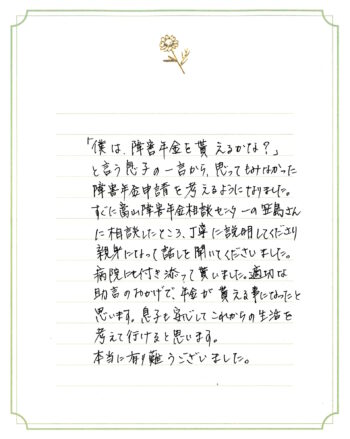 「僕は、障害年金を貰えるかな？」
と言う息子の一言から、思ってもみなかった
障害年金申請を考えるようになりました。
すぐに富山障害年金相談センターの笠島さん
に相談したところ、丁寧に説明してくださり
親身になって話しを聞いてくださいました。
病院にも付き添って貰いました。適切な
助言のおかげで、年金が貰える事になったと
思います。息子も安心してこれからの生活を
考えて行けると思います。
本当に有り難うございました。